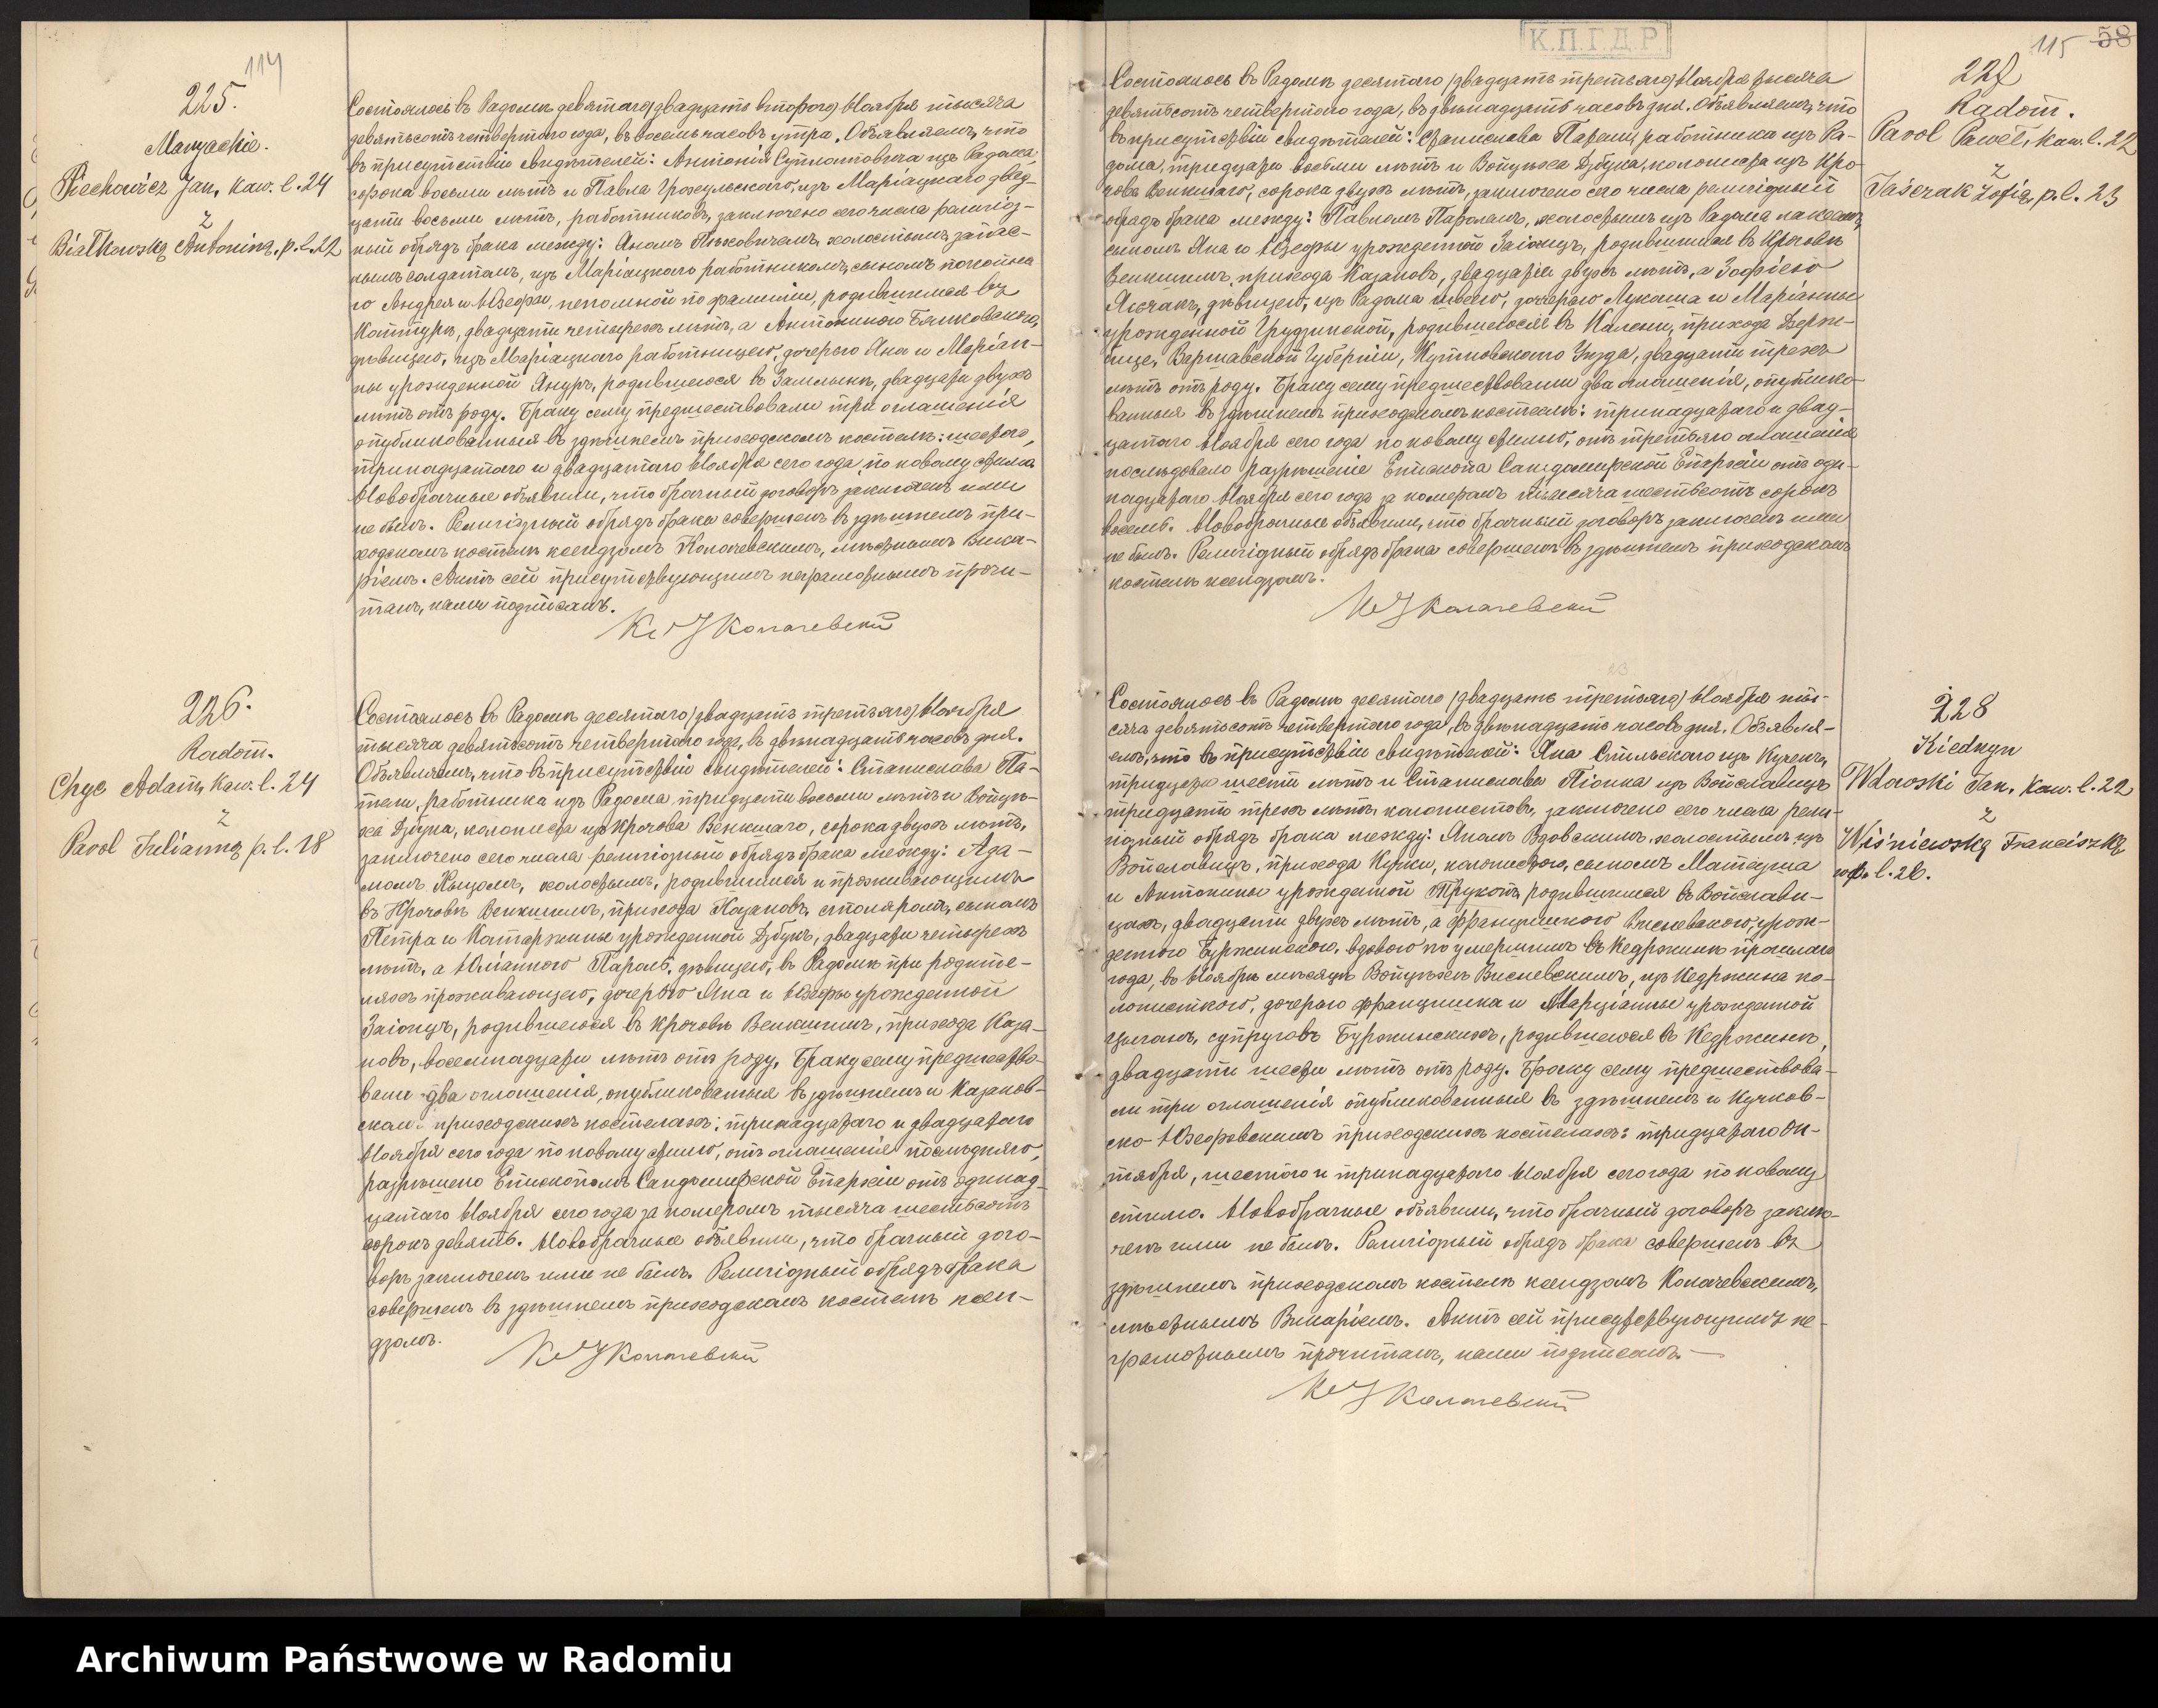 114
225.
Maryackie.
Piechowicz Jan, kaw. l. 24
z
Białkowską Antoniną, p. l. 22
Состоялось въ Радомѣ девятаго (двадцать второго) Ноября тысяча
девятьсотъ четвертаго года, въ восемь часовъ утра. Объявляемъ, что
въ присутствіи свидѣтелей: Антонія из Радома,
сорока восьми лѣтъ и Павла изъ Маріацкаго двад-
цати восьми лѣтъ, работниковъ, заключено сего числа религіоз-
ный обрядъ брака между: Яномъ Пѣховичемъ, холостымъ, запас-
нымъ солдатомъ, изъ Маріацкаго работникомъ, сыномъ покойна
го Андрея и Юзефы, непомной по фамиліи, родившимся въ
двадцати четырехъ лѣтъ, а Антониною Бялковскою,
дѣвицею, изъ Маріацкаго работницею, дочерью Яна и Маріан-
ны урожденной Януръ, родившеюся въ Замлынѣ, двадцати двухъ
лѣтъ отъ роду. Браку сему предшествовали три оглашенія
опубликованныя въ здѣшнемъ приходскомъ костелѣ: шестого,
тринадцатаго и двадцатаго Ноября сего года по новому стилю.
Новобрачные объявили, что брачный договоръ заключенъ ими
не былъ. Религіозный обрядъ брака совершенъ въ здѣшнемъ при-
ходскомъ костелѣ ксендзомъ Колачевскимъ, мѣстнымъ Вика-
ріемъ. Актъ сей присутствующимъ неграмотнымъ прочи-
танъ, нами подписанъ.
Колачевскій
226.
Radom.
Chyc Adam, kaw. l. 24
z
Parol Julianną p. l. 18
Состоялось въ Радомѣ десятаго (двадцать третьяго) Ноября
тысяча девятьсотъ четвертаго года, въ двѣнадцать часовъ дня.
Объявляемъ, что въ присутствіи свидѣтелей: Станислава Па-
работника изъ Радома тридцати восьми лѣтъ и Войцѣ-
ха Дзбука, колониста изъ Крочова Венкшаго, сорока двухъ лѣтъ,
заключено сего числа религіозный обрядъ брака между: Ада-
момъ Хыцомъ, холостымъ, родившимся и проживающимъ
въ Крочовѣ Венкшимъ, прихода Казановъ, столяромъ, сыномъ
Петра и Катаржины урожденной Дзбукъ, двадцати четырехъ
лѣтъ, а Юліанною Пароль, дѣвицею, въ Радомѣ при родите-
ляхъ проживающею, дочерью Яна и Юзефы урожденной
Заіонцъ, родившеюся въ Крочовѣ Венкшимъ, прихода Каза-
новъ, восемнадцати лѣтъ отъ роду. Браку сему предшество-
вали два оглашенія, опубликованныя въ здѣшнемъ и Казанов-
скомъ приходскихъ костелахъ: тринадцатаго и двадцатаго
Ноября сего года по новому стилю, отъ оглашенія послѣдняго,
разрѣшено Епископомъ Сандомирской Епархіи отъ одинад-
цатаго Ноября сего года за номеромъ тысяча шестьсотъ
сорокъ девять. Новобрачные объявили, что брачный дого-
воръ заключенъ ими не былъ. Религіозный обрядъ брака
совершенъ въ здѣшнемъ приходскомъ костелѣ ксен-
дзомъ.
Колачевскій
К.П.Г.Д.Р.
115 58
227
Radom.
Parol Paweł, kaw. l. 22
z
Jaśczak Zofią, p. l. 23
Состоялось въ Радомѣ десятаго (двадцать третьяго) Ноября тысяча
девятьсотъ четвертаго года, въ двѣнадцать часовъ дня. Объявляемъ, что
въ присутствіи свидѣтелей: Станислава работника изъ Ра-
дома, тридцати восьми лѣтъ и Войцѣха Дзбука, колониста изъ Кро-
чова Венкшаго, сорока двухъ лѣтъ, заключено сего числа религіозный
обрядъ брака между: Павломъ Паролемъ, холостымъ изъ Радома
сыномъ Яна и Юзефы урожденной Заіонцъ, родившимся въ Крочовѣ
Венкшимъ, прихода Казановъ, двадцати двухъ лѣтъ, а Зофіею
Ясчакъ, дѣвицею, изъ Радома дочерью Лукаша и Маріанны
урожденной Грудзинской, родившеюся въ прихода
Варшавской Губерніи, Кутновскаго Уѣзда, двадцати трехъ
лѣтъ отъ роду. Браку сему предшествовали два оглашенія, опублико-
ванныя въ здѣшнемъ приходскомъ костелѣ: тринадцатаго и двад-
цатаго Ноября сего года по новому стилю, отъ третьяго оглашенія
послѣдовало разрѣшеніе Епископа Сандомирской Епархіи отъ оди-
надцатаго Ноября сего года за номеромъ тысяча шестьсотъ сорокъ
восемь. Новобрачные объявили, что брачный договоръ заключенъ ими
не былъ. Религіозный обрядъ брака совершенъ въ здѣшнемъ приходскомъ
костелѣ ксендзомъ.
Колачевскій
228
Kiedrzyn
Wdowski Jan, kaw. l. 22
z
Wiśniewską Franciszką
wd. l. 26.
Состоялось въ Радомѣ десятаго (двадцать третьяго) Ноября ты-
сяча девятьсотъ четвертаго года, въ двѣнадцать часовъ дня. Объявля-
емъ, что въ присутствіи свидѣтелей: Яна изъ
тридцати шести лѣтъ и Станислава Піонка изъ Войславицъ
тридцати трехъ лѣтъ, колонистовъ, заключено сего числа рели-
гіозный обрядъ брака между: Яномъ Вдовскимъ, холостымъ изъ
Войславицъ, прихода Кучки, колонистомъ, сыномъ Матеуша
и Антонины урожденной родившимся въ Войслави-
цахъ, двадцати двухъ лѣтъ, а Францишкою Висневскою, урож-
денною Буржинскою, вдовою по умершимъ въ Кедржинѣ прошлаго
года, въ Ноябрѣ мѣсяцѣ Войцѣхѣ Висневскимъ, изъ Кедржина ко-
лонисткою, дочерью Францишка и Марціанны урожденной
Цыганъ, супруговъ Буржинскихъ, родившеюся въ Кедржинѣ,
двадцати шести лѣтъ отъ роду. Браку сему предшествова-
ли три оглашенія опубликованныя въ здѣшнемъ и Кучков-
ско-Юзефовскимъ приходскихъ костелахъ: тридцатаго Ок-
тября, шестого и тринадцатаго Ноября сего года по новому
стилю. Новобрачные объявили, что брачный договоръ заклю-
ченъ ими не былъ. Религіозный обрядъ брака совершенъ въ
здѣшнемъ приходскомъ костелѣ ксендзомъ Колачевскимъ,
мѣстнымъ Викаріемъ. Актъ сей присутствующимъ не-
грамотнымъ прочитанъ, нами подписанъ.
Колачевскій
Archiwum Państwowe w Radomiu